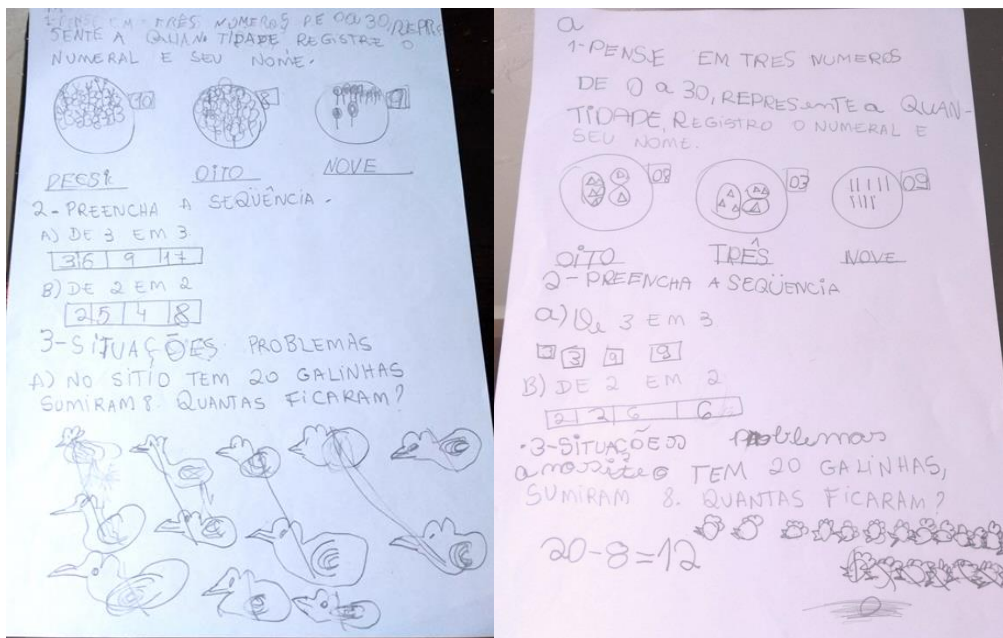 TRÊS NUMEROS DE 0 a 30, REPRE
SENTE A QUAN TIDADE REGISTRE O
NUMERAL E SEU NOME.
10 8 9
DEESI OITO NOVE
2-PREENCHA A SEQÜÊNCIA.
A) DE 3 EM 3
36 9 17
B) DE 2 EM 2
2 5 4 8
3-SITUAÇÕES PROBLEMAS
A) NO SITIO TEM 20 GALINHAS
SUMIRAM 8. QUANTAS FICARAM?
a
1-PENSE EM TRES NUMEROS
DE 0 a 30, REPRESENTE a QUAN-
TIDADE, REGISTRO O NUMERAL E
SEU NOME.
08 03 09
OITO TRÊS NOVE
2-PREENCHA A SEQÜENCIA
a) De 3 EM 3
3 9 9
B) DE 2 EM 2
2 2 6 6
3-SITUAÇÕES Problemas
a no sitio TEM 20 GALINHAS,
SUMIRAM 8. QUANTAS FICARAM?
20-8=12